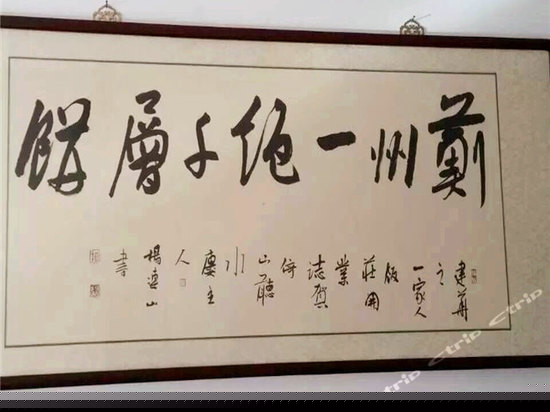 蓟州一绝千层饼
建华
之
一家人
饭
庄开
业
志贺
倚
山听
水
庐主
人
书
ctrip ctrip ctrip